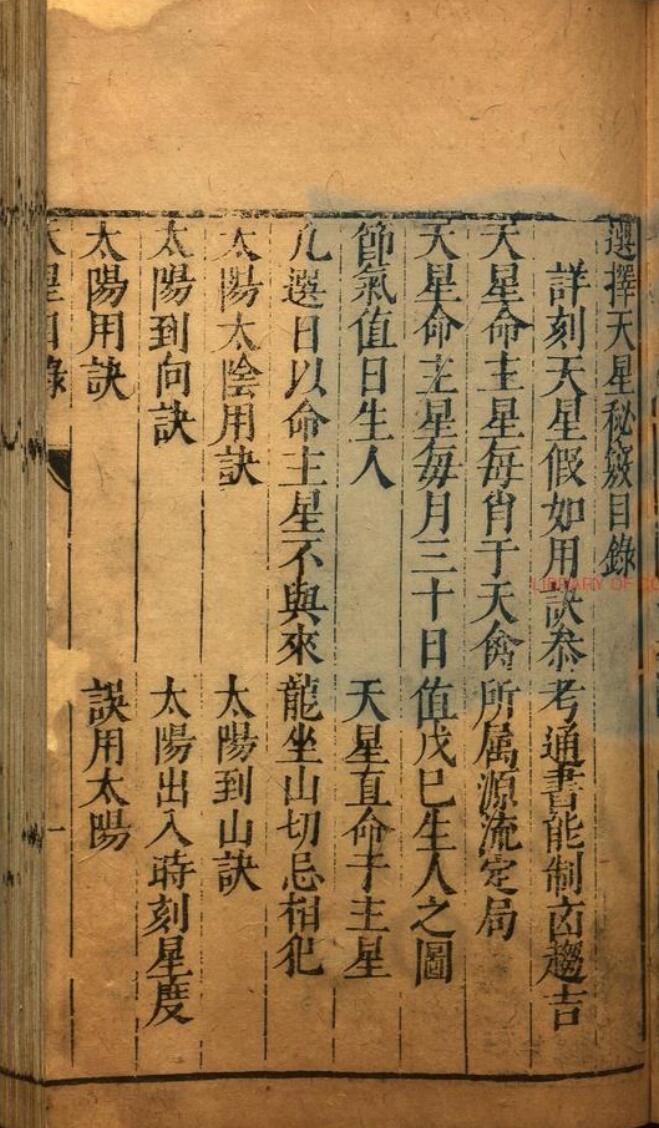 選擇天星秘竅目錄
詳刻天星假如用訣叅考通書能制凶趨吉
天星命主星每肖于天禽所属源流定局
天星命主星每月三十日值戊巳生人之圖
節氣值日生人 天星直命于主星
凡選日以命主星不與來龍坐山切忌相犯
太陽太陰用訣 太陽到山訣
太陽到向訣 太陽出入時刻星度
太陽用訣 誤用太陽
天星目錄 一
LIBRARY OF CO